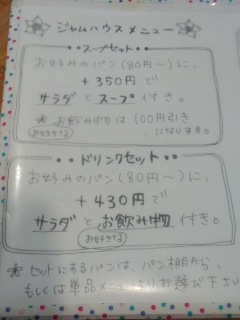 ジャムハウスメニュー
スープセット
お好みのパン(80円〜)に、
+350円で
サラダとスープ付き。
※お飲み物は100円引き
お好きな
になります。
ドリンクセット
お好みのパン(80円〜)に、
+430円で
サラダとお飲み物付き。
お好きな
※セットにするパンは、パン棚から、
もしくは単品メニューよりお選び下さい